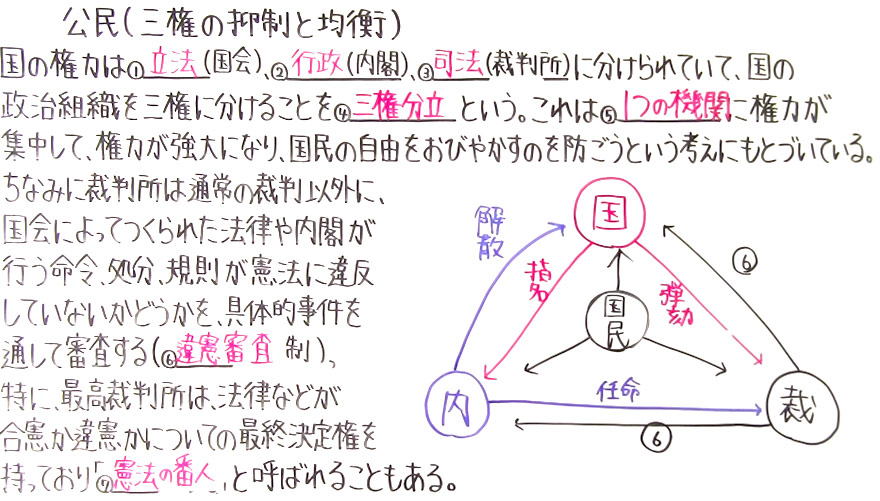 公民(三権の抑制と均衡)
国の権力は①立法(国会)、②行政(内閣)、③司法(裁判所)に分けられていて、国の
政治組織を三権に分けることを④三権分立という。これは⑤1つの機関に権力が
集中して、権力が強大になり、国民の自由をおびやかすのを防ごうという考えにもとづいている。
ちなみに裁判所は通常の裁判以外に、
国会によってつくられた法律や内閣が
行う命令、処分、規則が憲法に違反
していないかどうかを、具体的事件を
通して審査する(⑥違憲審査制)。
特に、最高裁判所は、法律などが
合憲か違憲かについての最終決定権を
持っており「⑦憲法の番人」と呼ばれることもある。
国
解散
指名
弾劾
⑥
国民
内
任命
裁
⑥